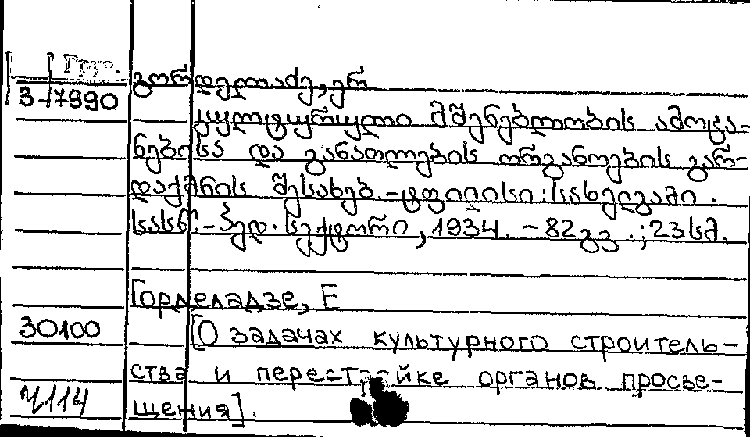 Груз.
3-17990
გორდელაძე, ერ
კულტურული მშენებლობის ამოცა-
ნებისა და განათლების ორგანოების გარ-
დაქმნის შესახებ.-ტფილისი: სახელგამი.
სასწ.-პედ. სექტორი, 1934. - 82 გვ.; 23 სმ.
Горделадзе, Е
30100
[О задачах культурного строитель-
ства и перестройке органов просве-
4114
щения].